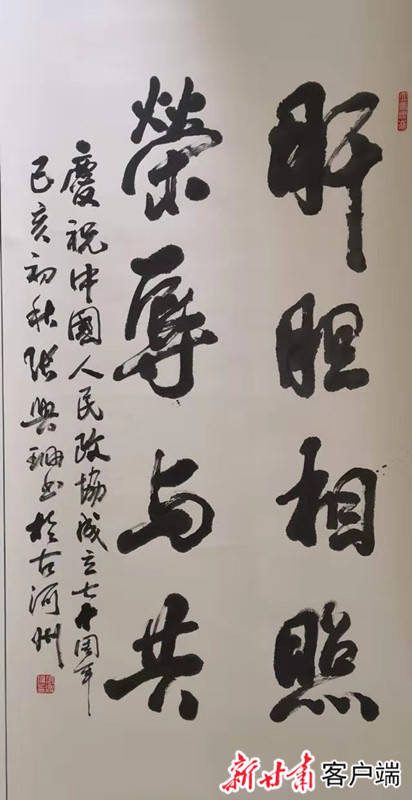 肝胆相照
榮辱与共
慶祝中國人民政協成立七十周年
己亥初秋张興珊书於古河州
新甘肃客户端